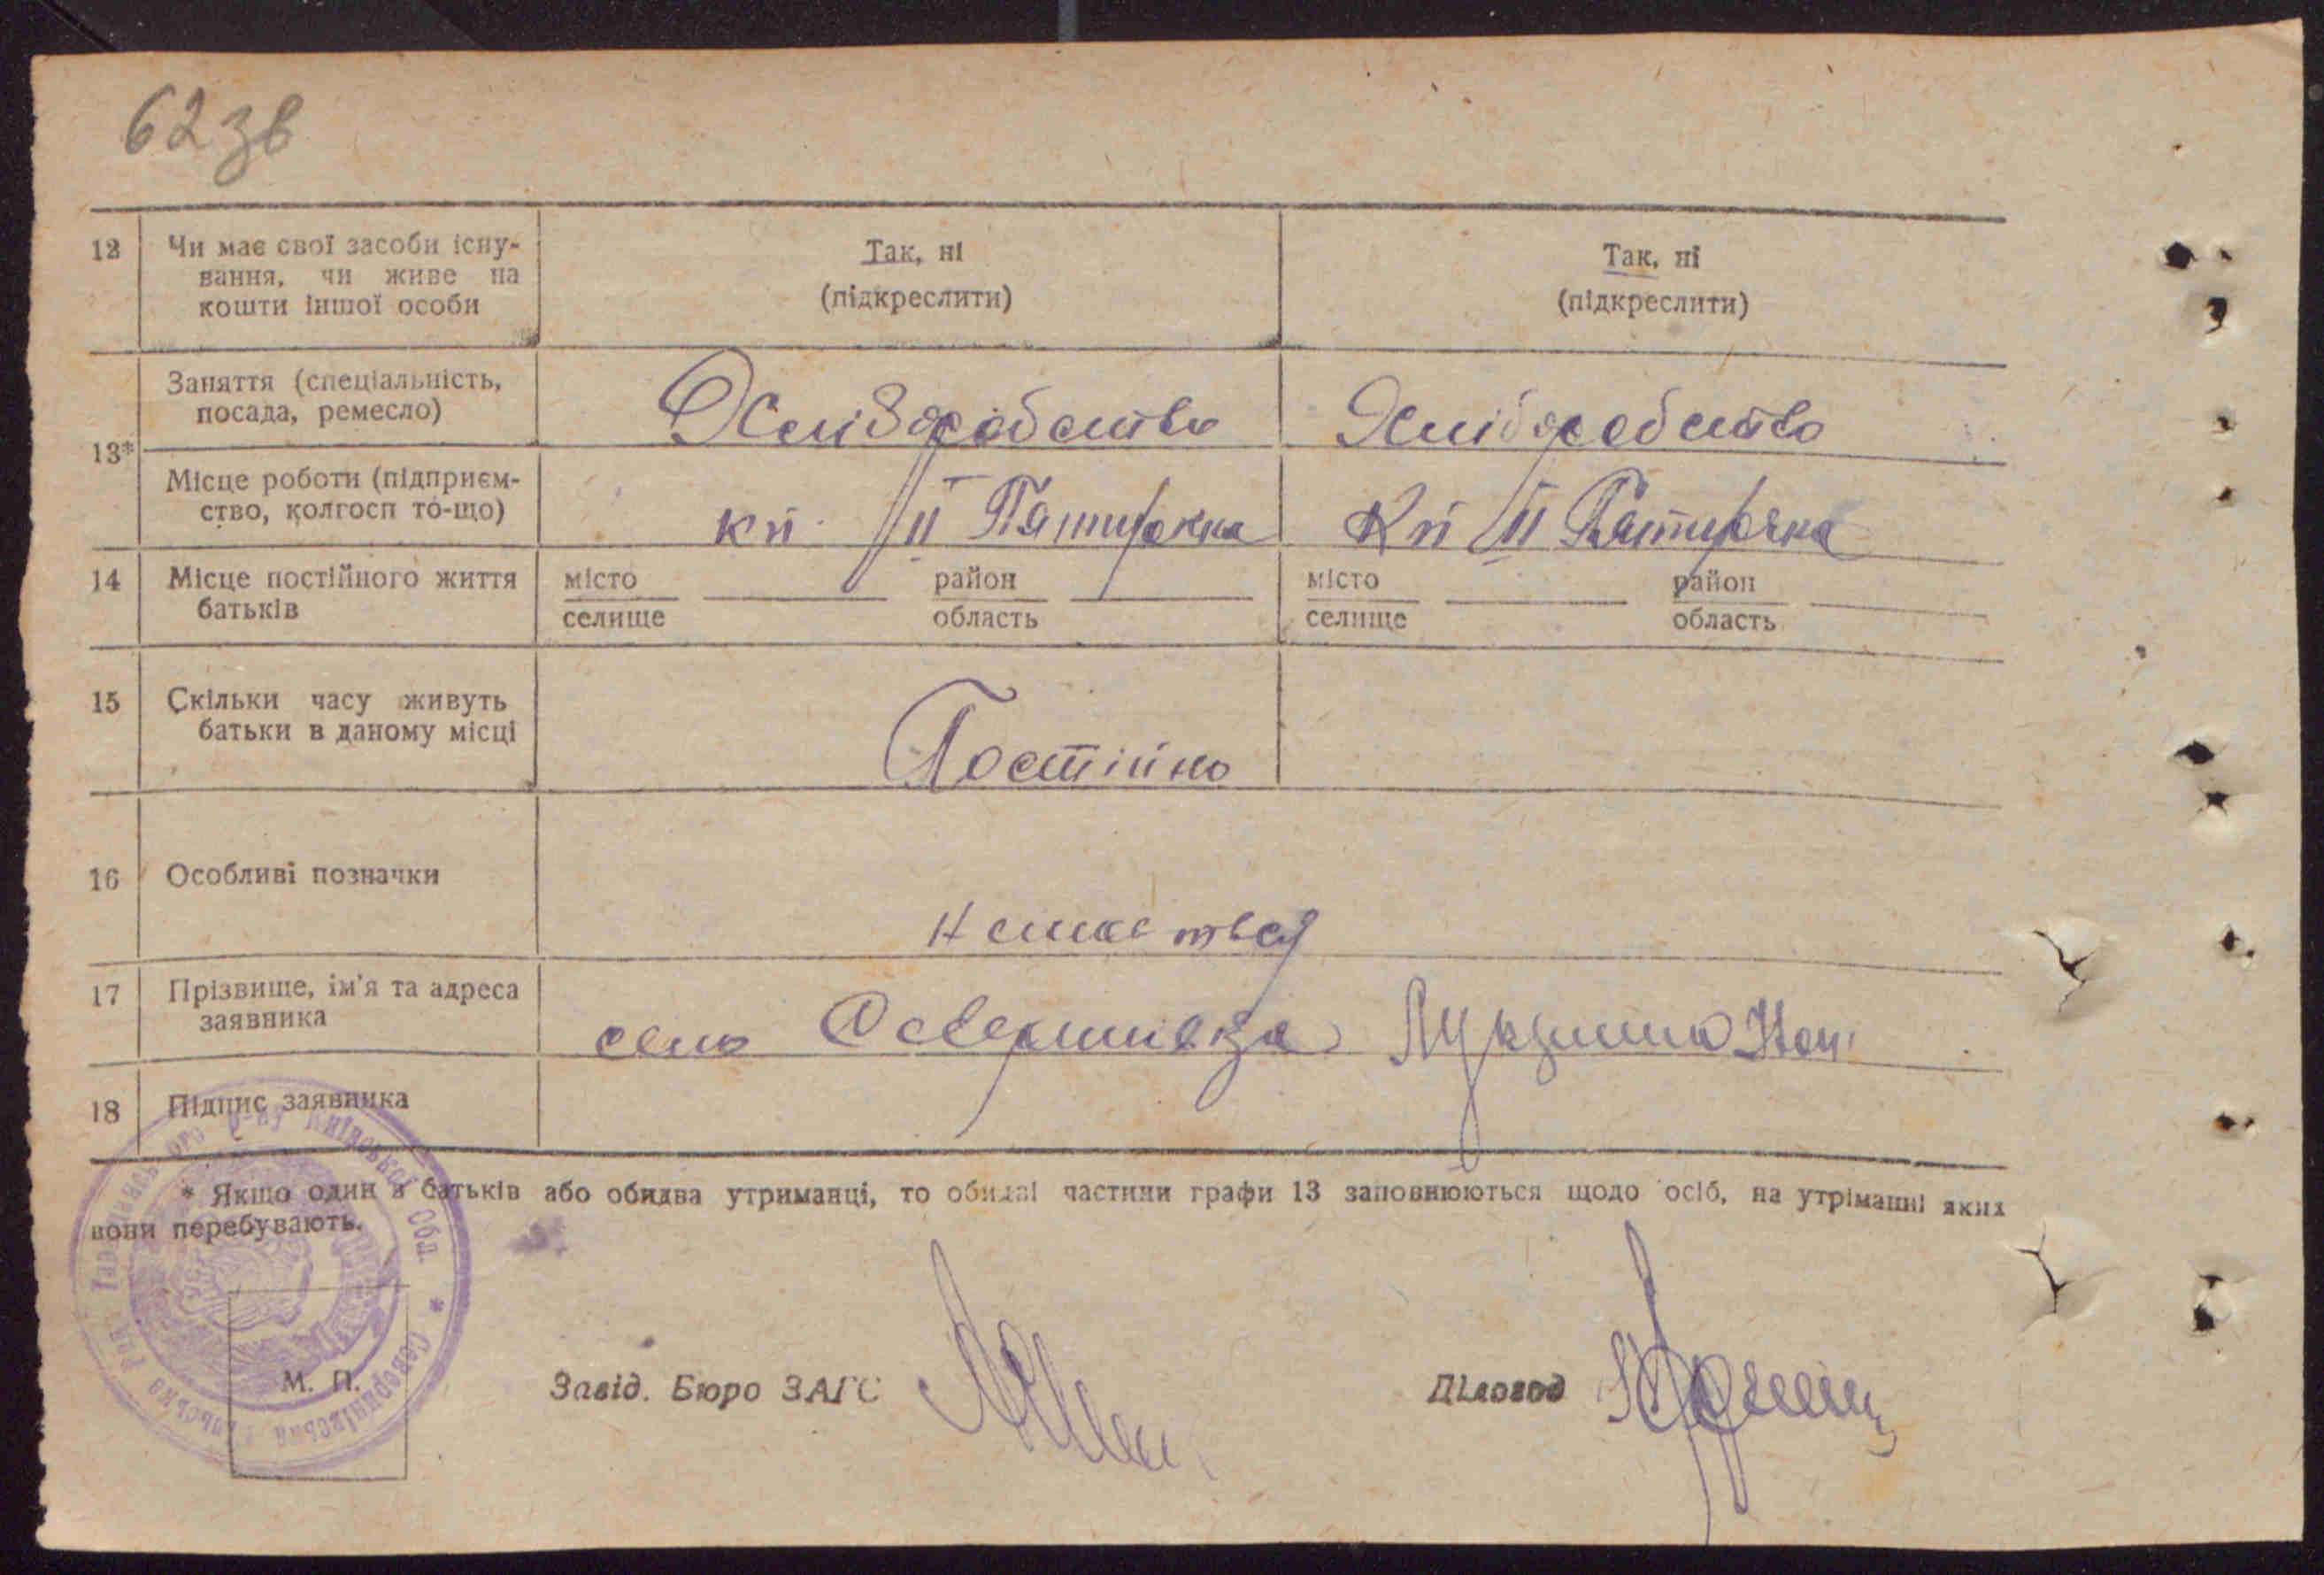 62 зв
12 Чи має свої засоби існу- Так, ні Так, ні
вання, чи живе на (підкреслити) (підкреслити)
кошти іншої особи
13* Заняття (спеціальність, Хліборобство Хліборобство
посада, ремесло)
Місце роботи (підприєм- кп II Пятирічка кп II Пятирічка
ство, колгосп то-що)
14 Місце постійного життя місто район місто район
батьків селище область селище область
15 Скільки часу живуть Постійно
батьки в даному місці
16 Особливі позначки
17 Прізвище, ім'я та адреса село
заявника
18 Підпис заявника
* Якщо один з батьків або обидва утриманці, то обидві частини графи 13 заповнюються щодо осіб, на утріманні яких
вони перебувають.
М. П. Завід. Бюро ЗАГС Діловод